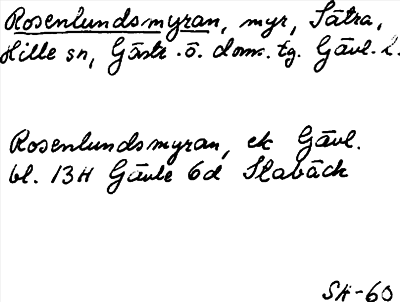 Rosenlundsmyran, myr, Sätra,
Hille sn, Gästr.ö. doms. tg. Gävl. l.
Rosenlundsmyran, ek Gävl.
bl. 13H Gävle 6d Slabäck
SH-60